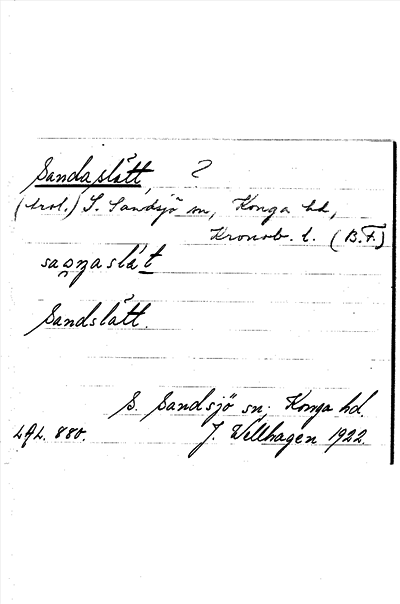 Sandaslätt, ?
(trol.) S. Sandsjö sn, Konga hd,
Kronob. l. (B.F.)
Sandslätt.
S. Sandsjö sn. Konga hd.
J. Wellhagen 1922.